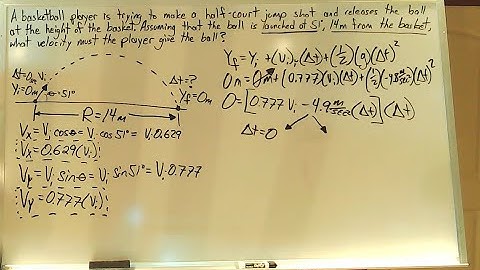 A basketball player is trying to make a half-court jump shot and releases the ball
at the height of the basket. Assuming that the ball is launched at 51°, 14m from the basket,
what velocity must the player give the ball?
Δt=0s Vi
Yi=0m
θ=51°
Δt=?
Yf=0m
R=14m
Vx=Vi cosθ=Vi cos51°=Vi·0.629
Vx=0.629(Vi)
Vy=Vi sinθ=Vi sin51°=Vi·0.777
Vy=0.777(Vi)
Yf=Yi+(Vi)y(Δt)+(1/2)(g)(Δt)²
0m=0m+(0.777)(Vi)(Δt)+(1/2)(-9.8m/s²)(Δt)²
0=[0.777 Vi-4.9 m/sec²(Δt)](Δt)
Δt=0